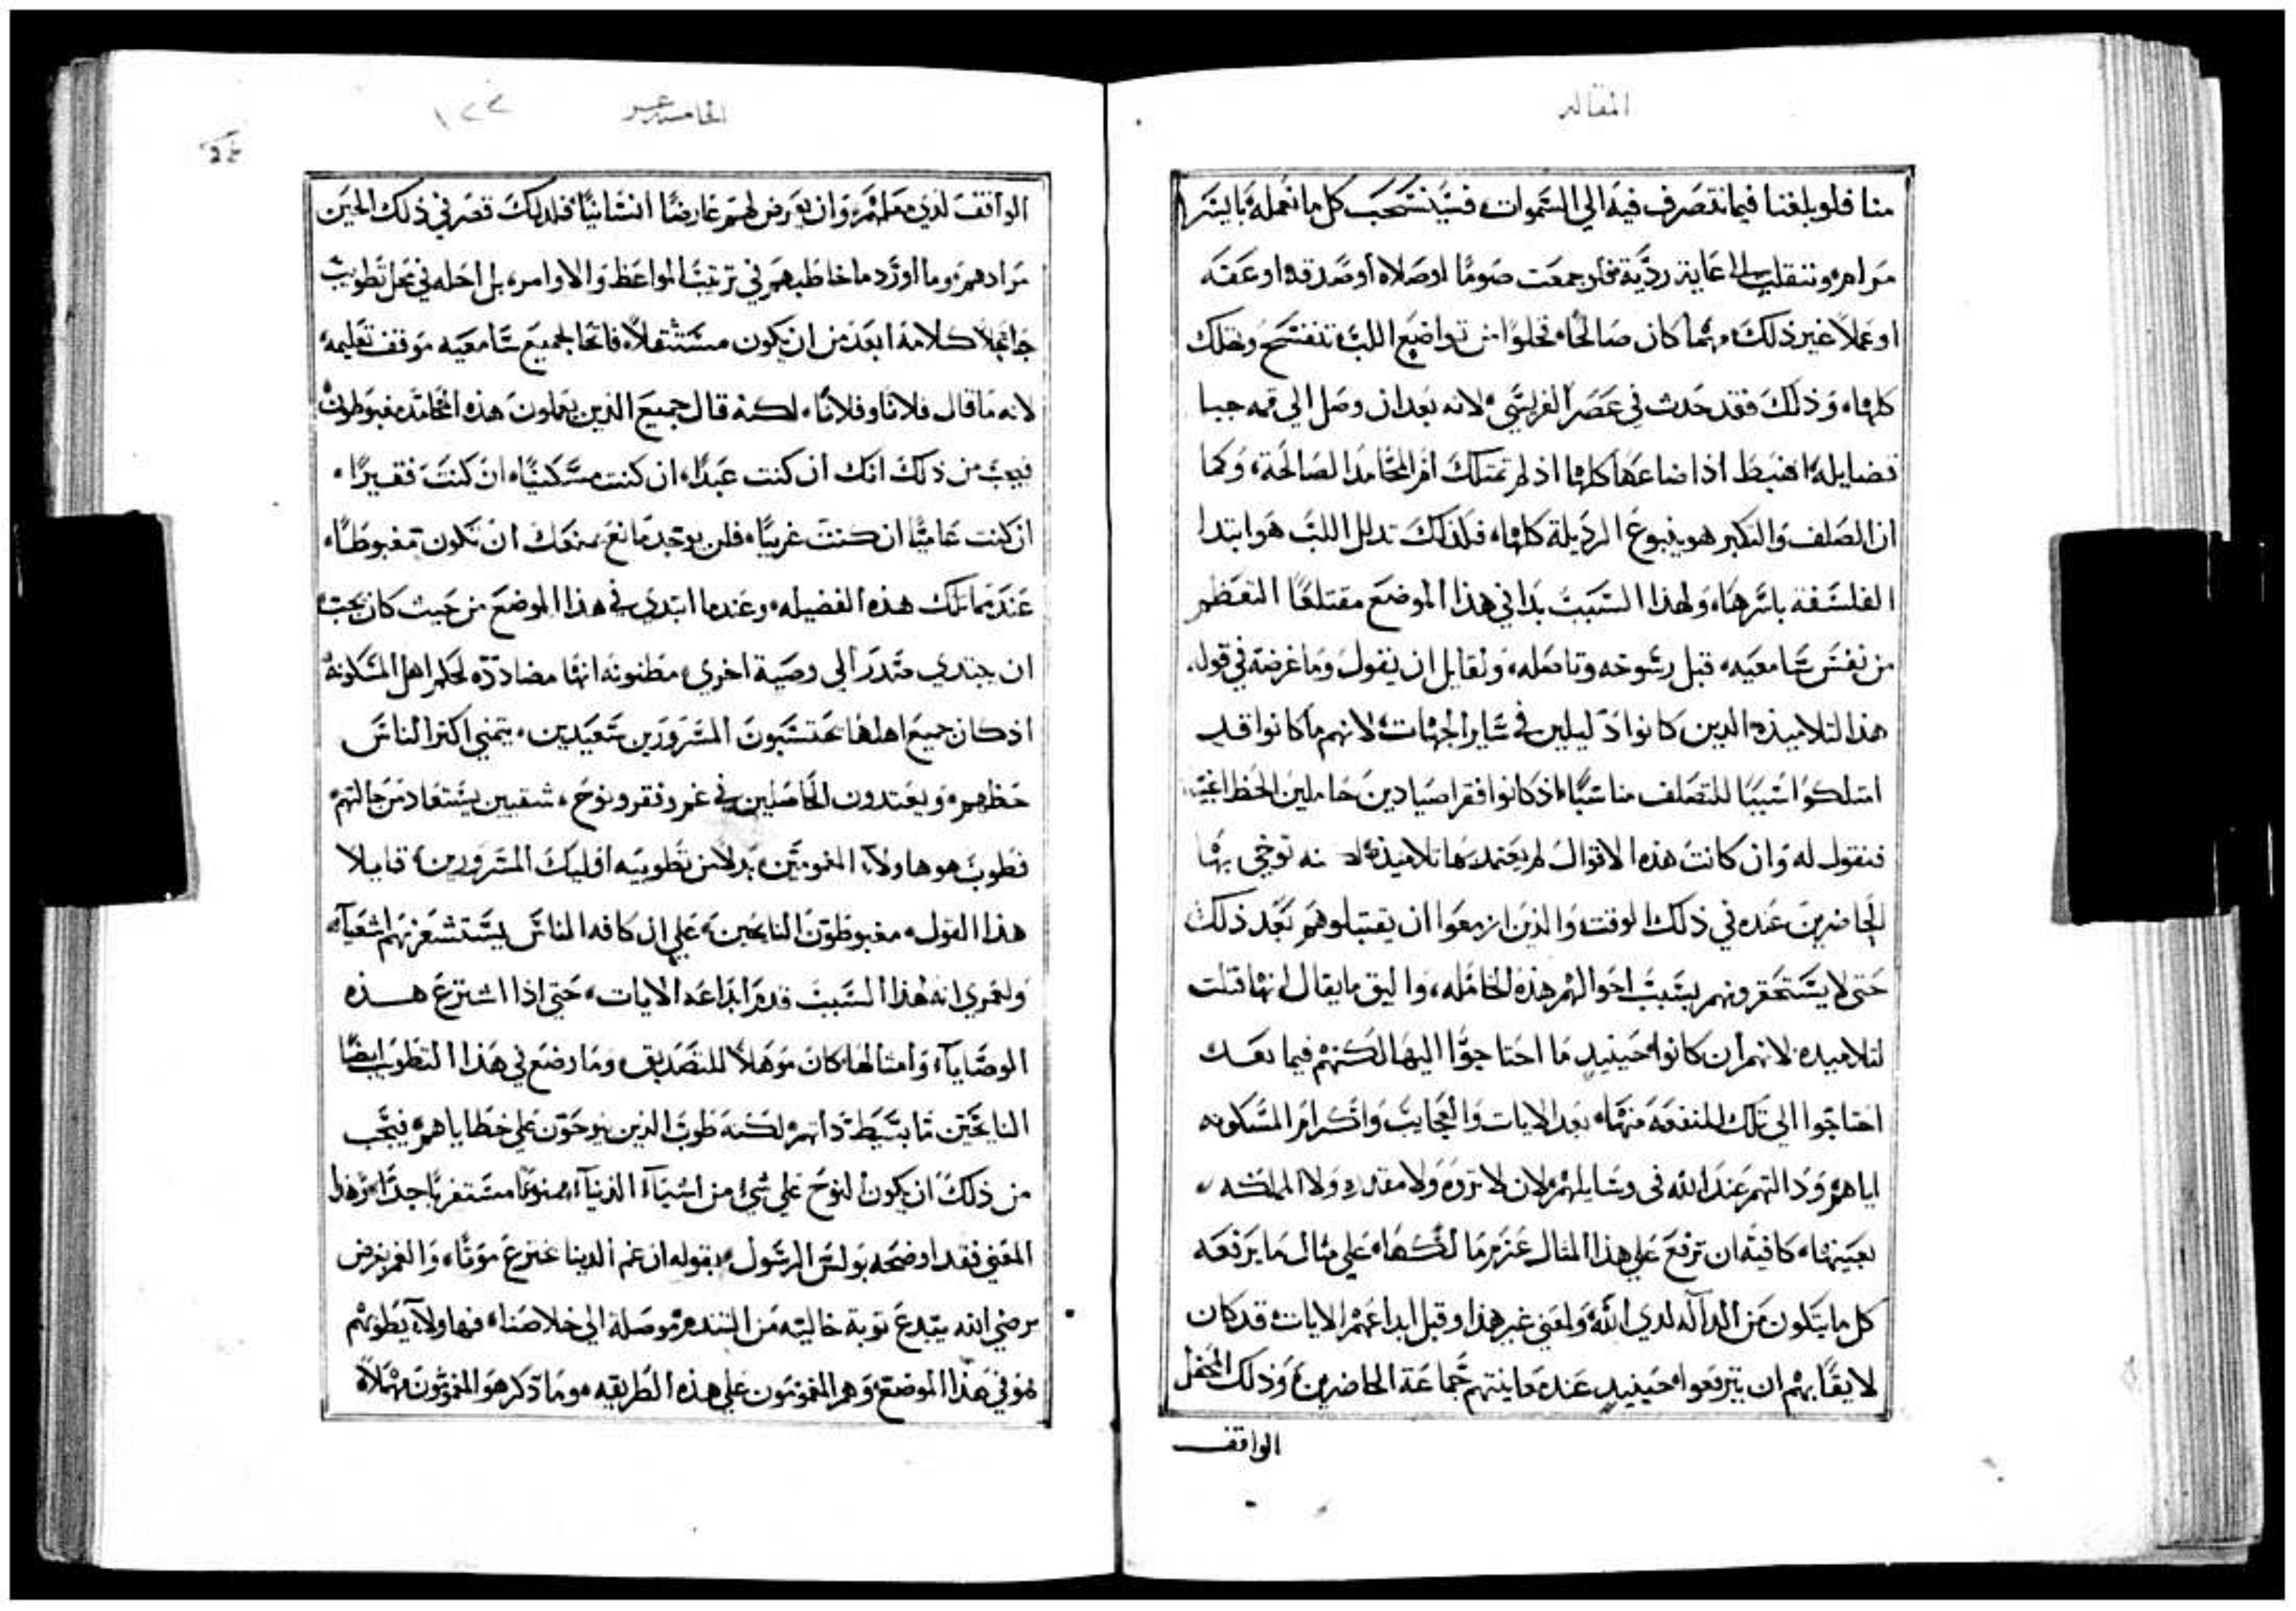 المقاله
منا فلو بلغنا فيما نتصرف فيه الي السموات، فسينسحب كل ما نعمله باسرا
مرامره وننقلب الي غاية رديّة فلو جمعت صومًا او صلاه او صدقه او عفه
او عملاً غير ذلك، مهما كان صالحًا، تخلوا من تواضع اللب تنفسح وتهلك
كلها، وذلك فقد حدث في عصر الفريسي، لانه بعد ان وصل الي قمه جبا
فضايله، اهبط اذ اضاعها كلها اذ لم تمتلك ام المحامد الصالحة، وكما
ان الصلف والتكبر هو ينبوع الرذيلة كلها، فلذلك تدلل اللب هو ابتدا
الفلسفة باسرها، ولهذا السبب بدا في هذا الموضع مقتلعًا التعظم
من نفس سامعيه، قبل رسوخه وتاصله، ولقايل ان يقول وما غرضه في قوله
هذا لتلاميذه الدين كانوا ذليلين في ساير الجهات، لانهم ما كانوا قد
امتلكوا سببا للتصلف مناسبًا، اذ كانوا فقرا صيادين خاملين الحظ اغبيا
فنقول له وان كانت هذه الاقوال لم يعتمد بها تلاميذه لكنه توخي بها
الحاضرين عنده في ذلك الوقت والذين ازمعوا ان يقتبلوهم بعد ذلك
حتي لا يستحقرونهم بسبب احوالهم هذه الخامله، واليق ما يقال انها قتلت
لتلاميده لانهم ان كانوا حينيد ما احتاجوا اليها لكنهم فيما بعد
احتاجوا الي تلك المنفعه منها، بعد الايات والعجايب واكرام المسكونه
اياهم، ودالتهم عند الله في وسايلهم، لان لا ثروه ولا مقدره ولا المملكه
بعينها، كافيه ان ترفع علي هذا المثال عزم مالكها، علي مثال ما يرفعه
كل ما يتكون من الداله لدي الله، ولعني غير هذا وقبل ابداعهم الايات، قد كان
لايقًا بهم ان يترفعوا، حينيد عند معاينتهم جماعة الحاضرين، وذلك المحفل
الواقف
الخامسه عشر
١٢٢
الواقف لدي معلمهم، وان يعرض لهم عارضًا انسانيًا، فلذلك قصر في ذلك الحين
مرادهم، وما اورد ما خاطبهم في ترتيب المواعظ والاوامر، بل احله في محل تطويب
جاعلاً كلامه ابعد من ان يكون مستثقلاً، فاتحًا لجميع سامعيه موقف تعليمه،
لانه ما قال فلانًا وفلانًا، لكنه قال جميع الذين يعملون هذه المحامد، مغبوطون
فيجب من ذلك انك ان كنت عبدًا، ان كنت مسكينًا، ان كنت فقيرًا،
ان كنت عاميًا ان كنت غريبًا، فلن يوجد مانع يمنعك ان تكون مغبوطًا،
عندما تملك هذه الفضيله، وعندما ابتدي في هذا الموضع من حيث كان يجب
ان يبتدي، تدرج الي وصية اخري، مظنونه انها مضاددّه لحكم اهل المسكونة
اذ كان جميع اهلها يحتسبون المسرورين سعيدين، يتمني اكثر الناس
حظهم، ويعتدون الحاصلين في غم وفقر ونوح، شقيين يستعاد من حالتهم
فطوب هو هاولآء المغمومين، بدلاً من تطويبه اوليك المسرورين، قايلا
هذا القول، مغبوطون النايحين، علي ان كافه الناس يستشعرهم اشقيآء
ولعمري انه لهذا السبب قدم ابداعه الايات، حتي اذا اشترع هذه
الوصايا، وامثالها، كان موهلاً للتصديق، وما وضع في هذا التطويب ايضًا
النايحين ما بسيط ذاتهم، لكنه طوب الذين ينوحون علي خطاياهم، فيجب
من ذلك ان يكون النوح علي شيء من اشيآء الدنيا، ممنوعًا مستغربًا جدًا، وهذا
المعني فقد اوضحه بولس الرسول، بقوله ان غم الدينا يخترع موتًا، والغم بغرض
يرضي الله يبتدع توبة خاليه من التندم، موصلة الي خلاصنا، فهاولآء يطوبهم
هو في هذا الموضع، وهم المغمومون علي هذه الطريقه، وما ذكر هو المغمومون مهملاً